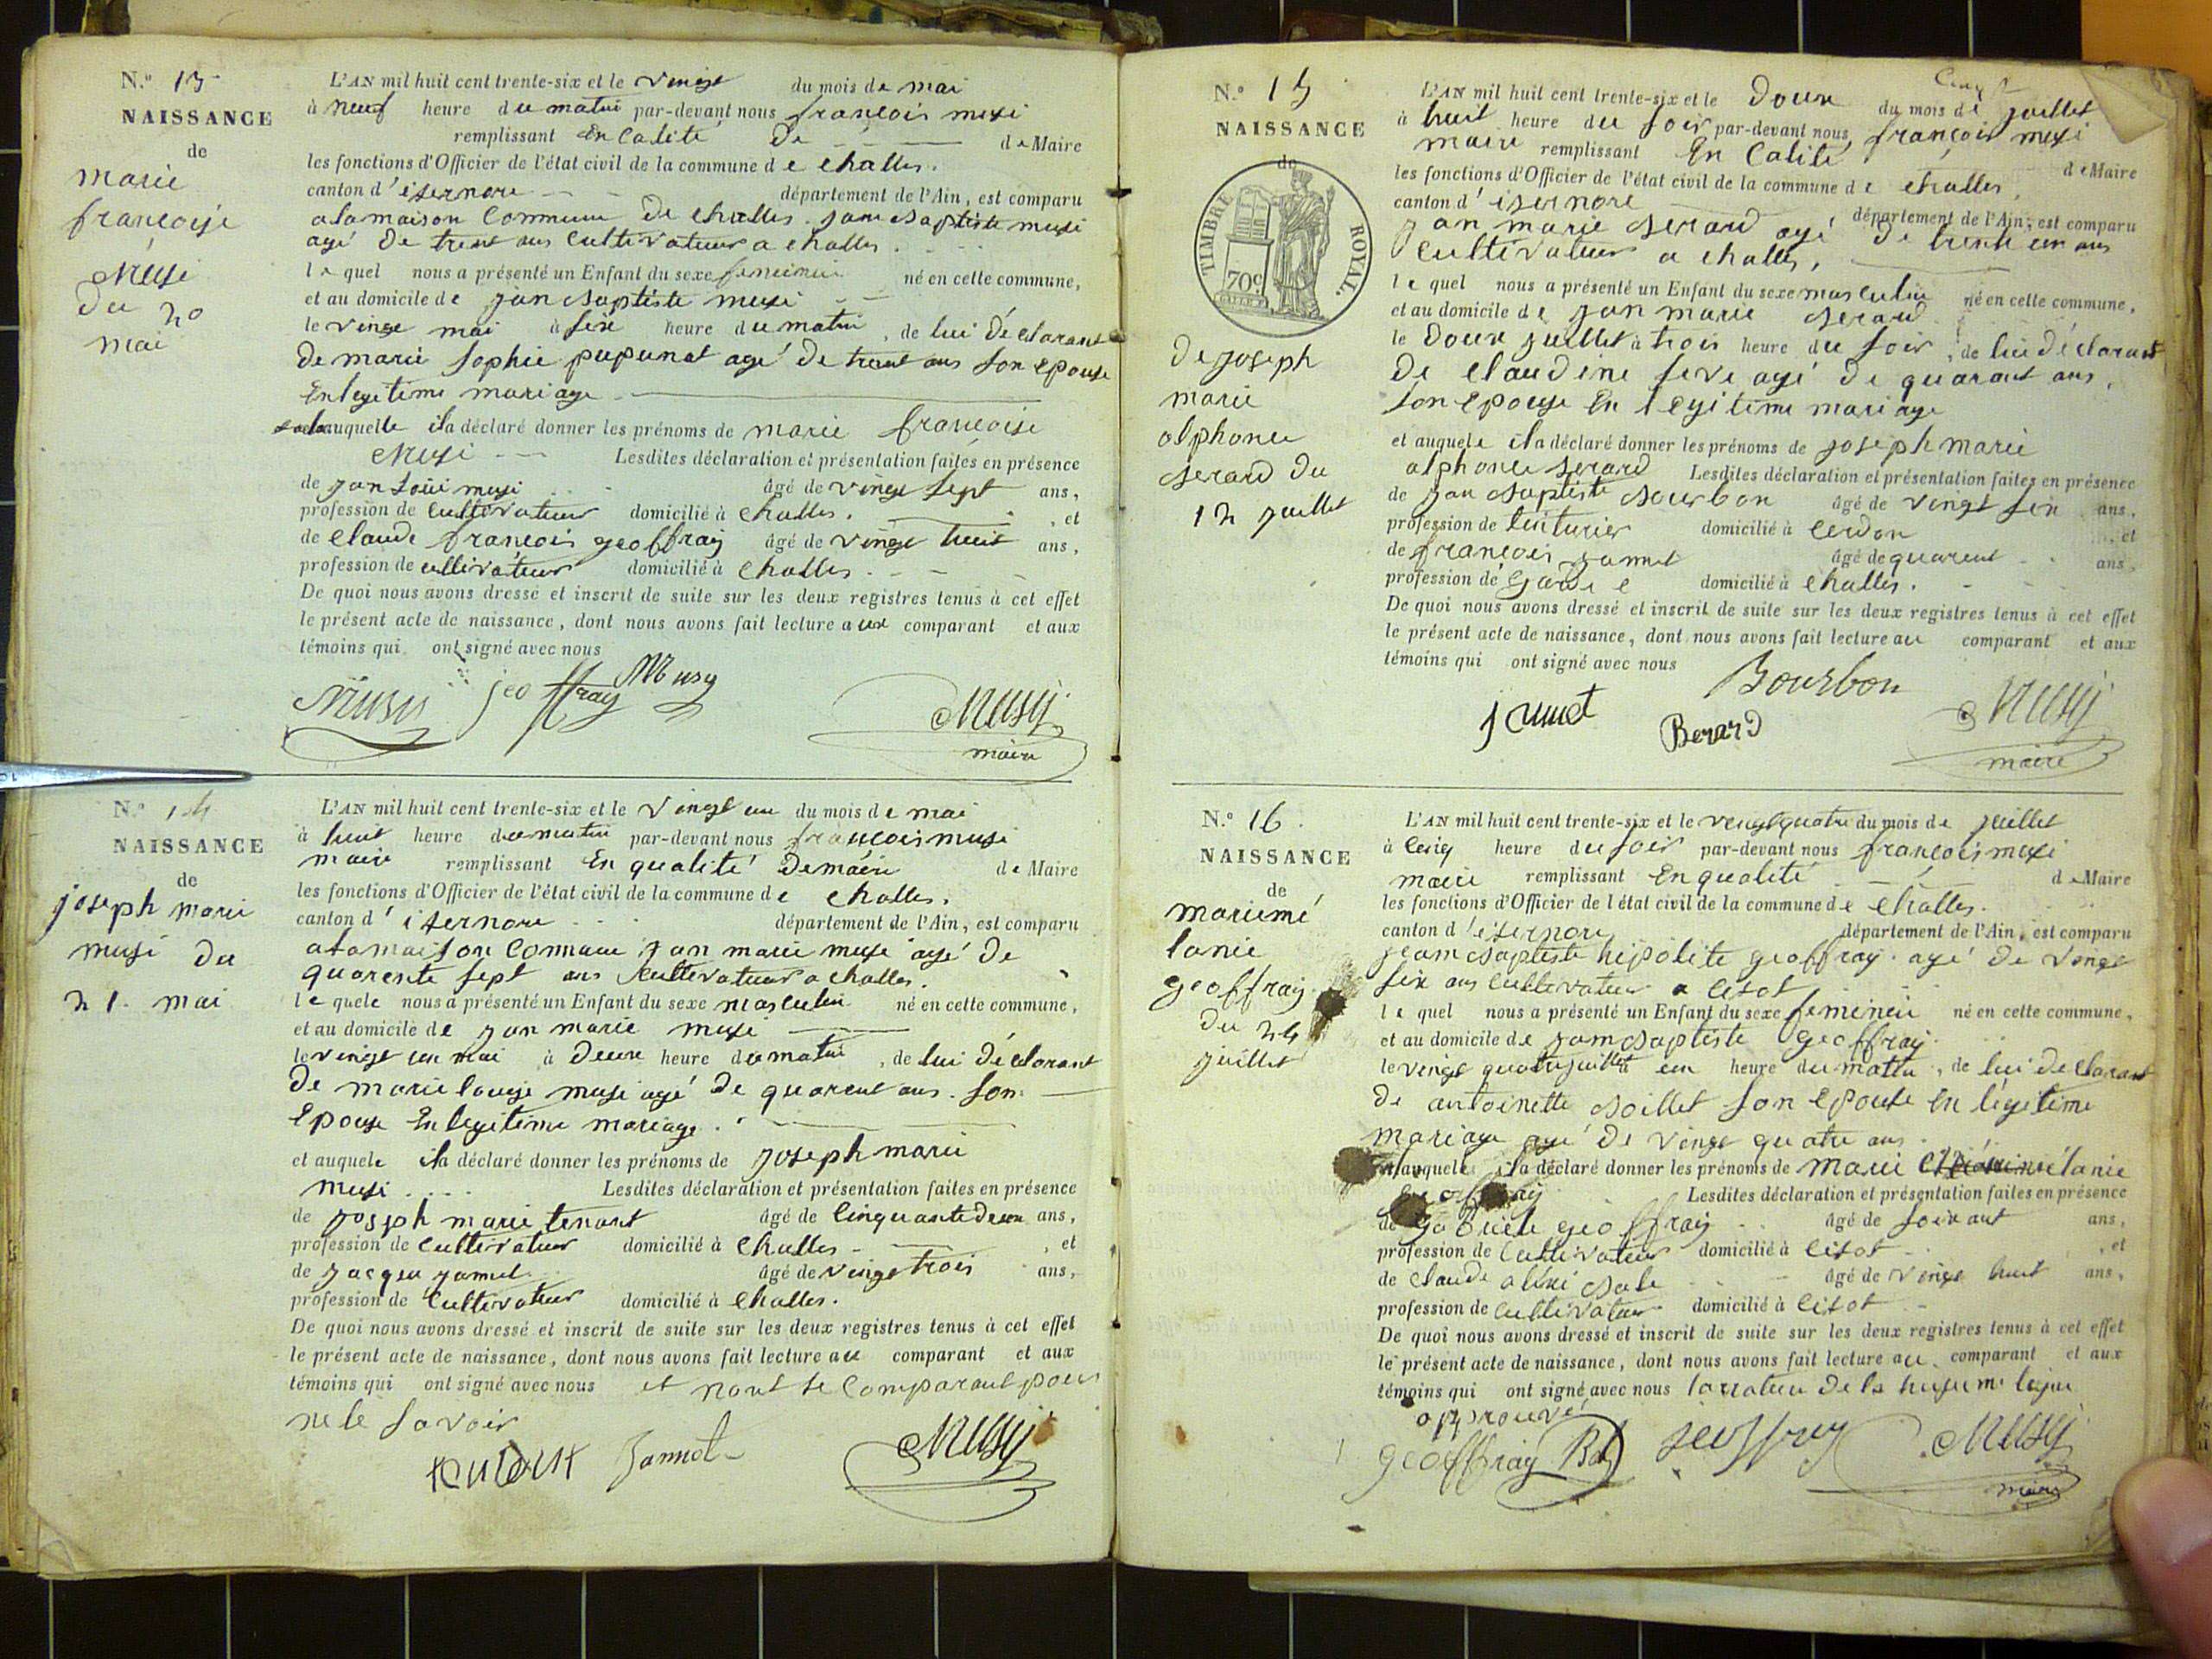 N.o 13
NAISSANCE
de
marie
francoise
Musi
du 20
mai
L'AN mil huit cent trente-six et le vingt du mois de mai
à neuf heure du matin par-devant nous francois musi
remplissant En calité De de Maire
les fonctions d'Officier de l'état civil de la commune de challes.
canton d'isernore département de l'Ain, est comparu
a la maison Commune De challes. jean Baptiste musi
agé De trent ans Cultivateur a challes.
lequel nous a présenté un Enfant du sexe feminin né en cette commune,
et au domicile de jan Baptiste musi
le vingt mai à six heure du matin, de lui déclarant
De marie sophie pupunat agé De trent ans son epouse
En legitime mariage
auquelle il a déclaré donner les prénoms de marie francoise
Musi Lesdites déclaration et présentation faites en présence
de jan Loui musi âgé de vingt sept ans,
profession de Cultivateur domicilié à Challes. , et
de Claude francois geoffray âgé de vingt huit ans,
profession de cultivateur domicilié à Challes.
De quoi nous avons dressé et inscrit de suite sur les deux registres tenus à cet effet
le présent acte de naissance, dont nous avons fait lecture aux comparant et aux
témoins qui ont signé avec nous
Musy geoffray Musy Musy
maire
N.o 14
NAISSANCE
de
joseph marie
musi du
21 mai
L'AN mil huit cent trente-six et le vingt un du mois de mai
à huit heure du matin par-devant nous francois musi
maire remplissant En qualité De maire de Maire
les fonctions d'Officier de l'état civil de la commune de challes.
canton d'isernore département de l'Ain, est comparu
a la maison Commune jan marie musi agé De
quarente sept ans Cultivateur a challes.
le quele nous a présenté un Enfant du sexe masculin né en cette commune,
et au domicile de jan marie musi
le vingt un mai à Deux heure du matin, de lui déclarant
De marie louise musi agé De quarent ans. son
Epouse En legitime mariage.
et auquele il a déclaré donner les prénoms de joseph marie
musi .... Lesdites déclaration et présentation faites en présence
de joseph marie tenant âgé de Cinquante deux ans,
profession de Cultivateur domicilié à Challes , et
de jacque jamet âgé de vingt trois ans,
profession de Cultivateur domicilié à Challes.
De quoi nous avons dressé et inscrit de suite sur les deux registres tenus à cet effet
le présent acte de naissance, dont nous avons fait lecture au comparant et aux
témoins qui ont signé avec nous et nont le Comparant pour
ne le savoir
Musy
N.o 15
NAISSANCE
de
TIMBRE ROYAL.
70c
De joseph
marie
alphonce
Berard Du
12 juillet
L'AN mil huit cent trente-six et le Doux du mois de juillet
à huit heure du soir par-devant nous francois musi
maire remplissant En Calité de Maire
les fonctions d'Officier de l'état civil de la commune de challes
canton d'isernore département de l'Ain, est comparu
jan marie Berard agé De trente un ans
Cultivateur a challes.
lequel nous a présenté un Enfant du sexe masculin né en cette commune,
et au domicile de jan marie Berard
le Doux juillet à trois heure du soir, de lui déclarant
De Claudine seve agé De quarant ans,
son Epouse En legitime mariage
et auquele il a déclaré donner les prénoms de joseph marie
alphonce Berard Lesdites déclaration et présentation faites en présence
de jan Baptiste Bourbon âgé de vingt six ans,
profession de tinturier domicilié à Cerdon , et
de francois jamet âgé de quarent ans,
profession de Garde domicilié à Challes.
De quoi nous avons dressé et inscrit de suite sur les deux registres tenus à cet effet
le présent acte de naissance, dont nous avons fait lecture au comparant et aux
témoins qui ont signé avec nous
Bourbon
Berard Musy
maire
N.o 16
NAISSANCE
de
marie mé
lanie
geoffray
du 24
juillet
L'AN mil huit cent trente-six et le vingt quatre du mois de juillet
à Cinq heure du soir par-devant nous francois musi
maire remplissant En qualité de Maire
les fonctions d'Officier de l'état civil de la commune de Challes.
canton d'isernore département de l'Ain, est comparu
jeam Baptiste hipolite geoffray. agé De vingt
six ans Cultivateur a Cisot
lequel nous a présenté un Enfant du sexe feminin né en cette commune,
et au domicile de jam Baptiste Geoffray.
le vingt quatre juillet à un heure du matin, de lui declarant
De antoinette Boillet son Epouse En légitime
mariage agé De vingt quatre ans.
auquele il a déclaré donner les prénoms de marie mélanie
Geoffray Lesdites déclaration et présentation faites en présence
de gabriele geoffray âgé de soixant ans,
profession de Cultivateur domicilié à Cisot , et
de Claude âgé de vingt huit ans,
profession de Cultivateur domicilié à Cisot
De quoi nous avons dressé et inscrit de suite sur les deux registres tenus à cet effet
le présent acte de naissance, dont nous avons fait lecture au comparant et aux
témoins qui ont signé avec nous
approuvé
geoffray geoffray Musy
maire